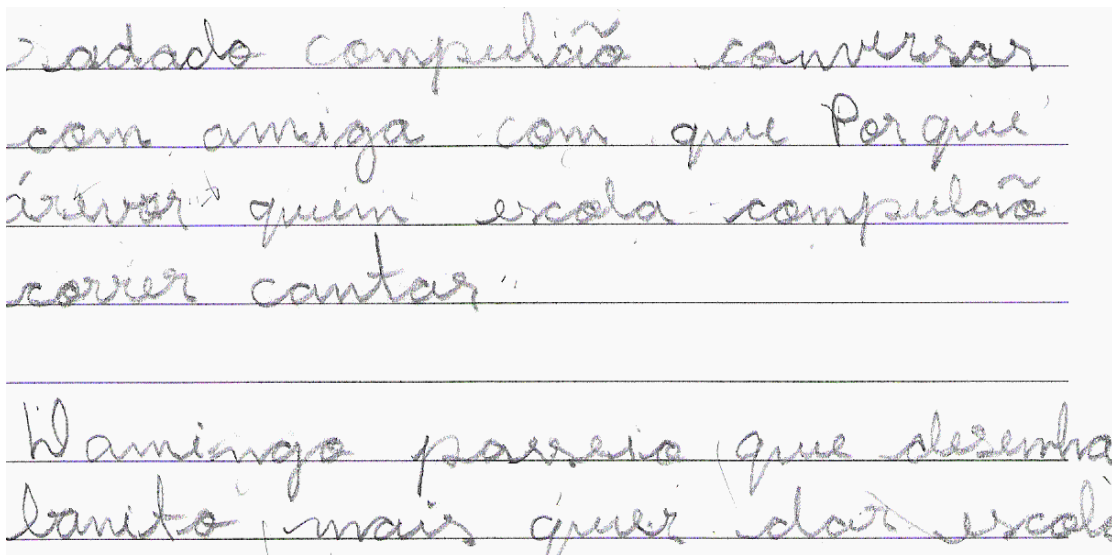 compulição conversar
com amiga com que Porque
árevor quem escola compulão
correr cantar
Damingo passeio que desenha
banito mais quer dar escola